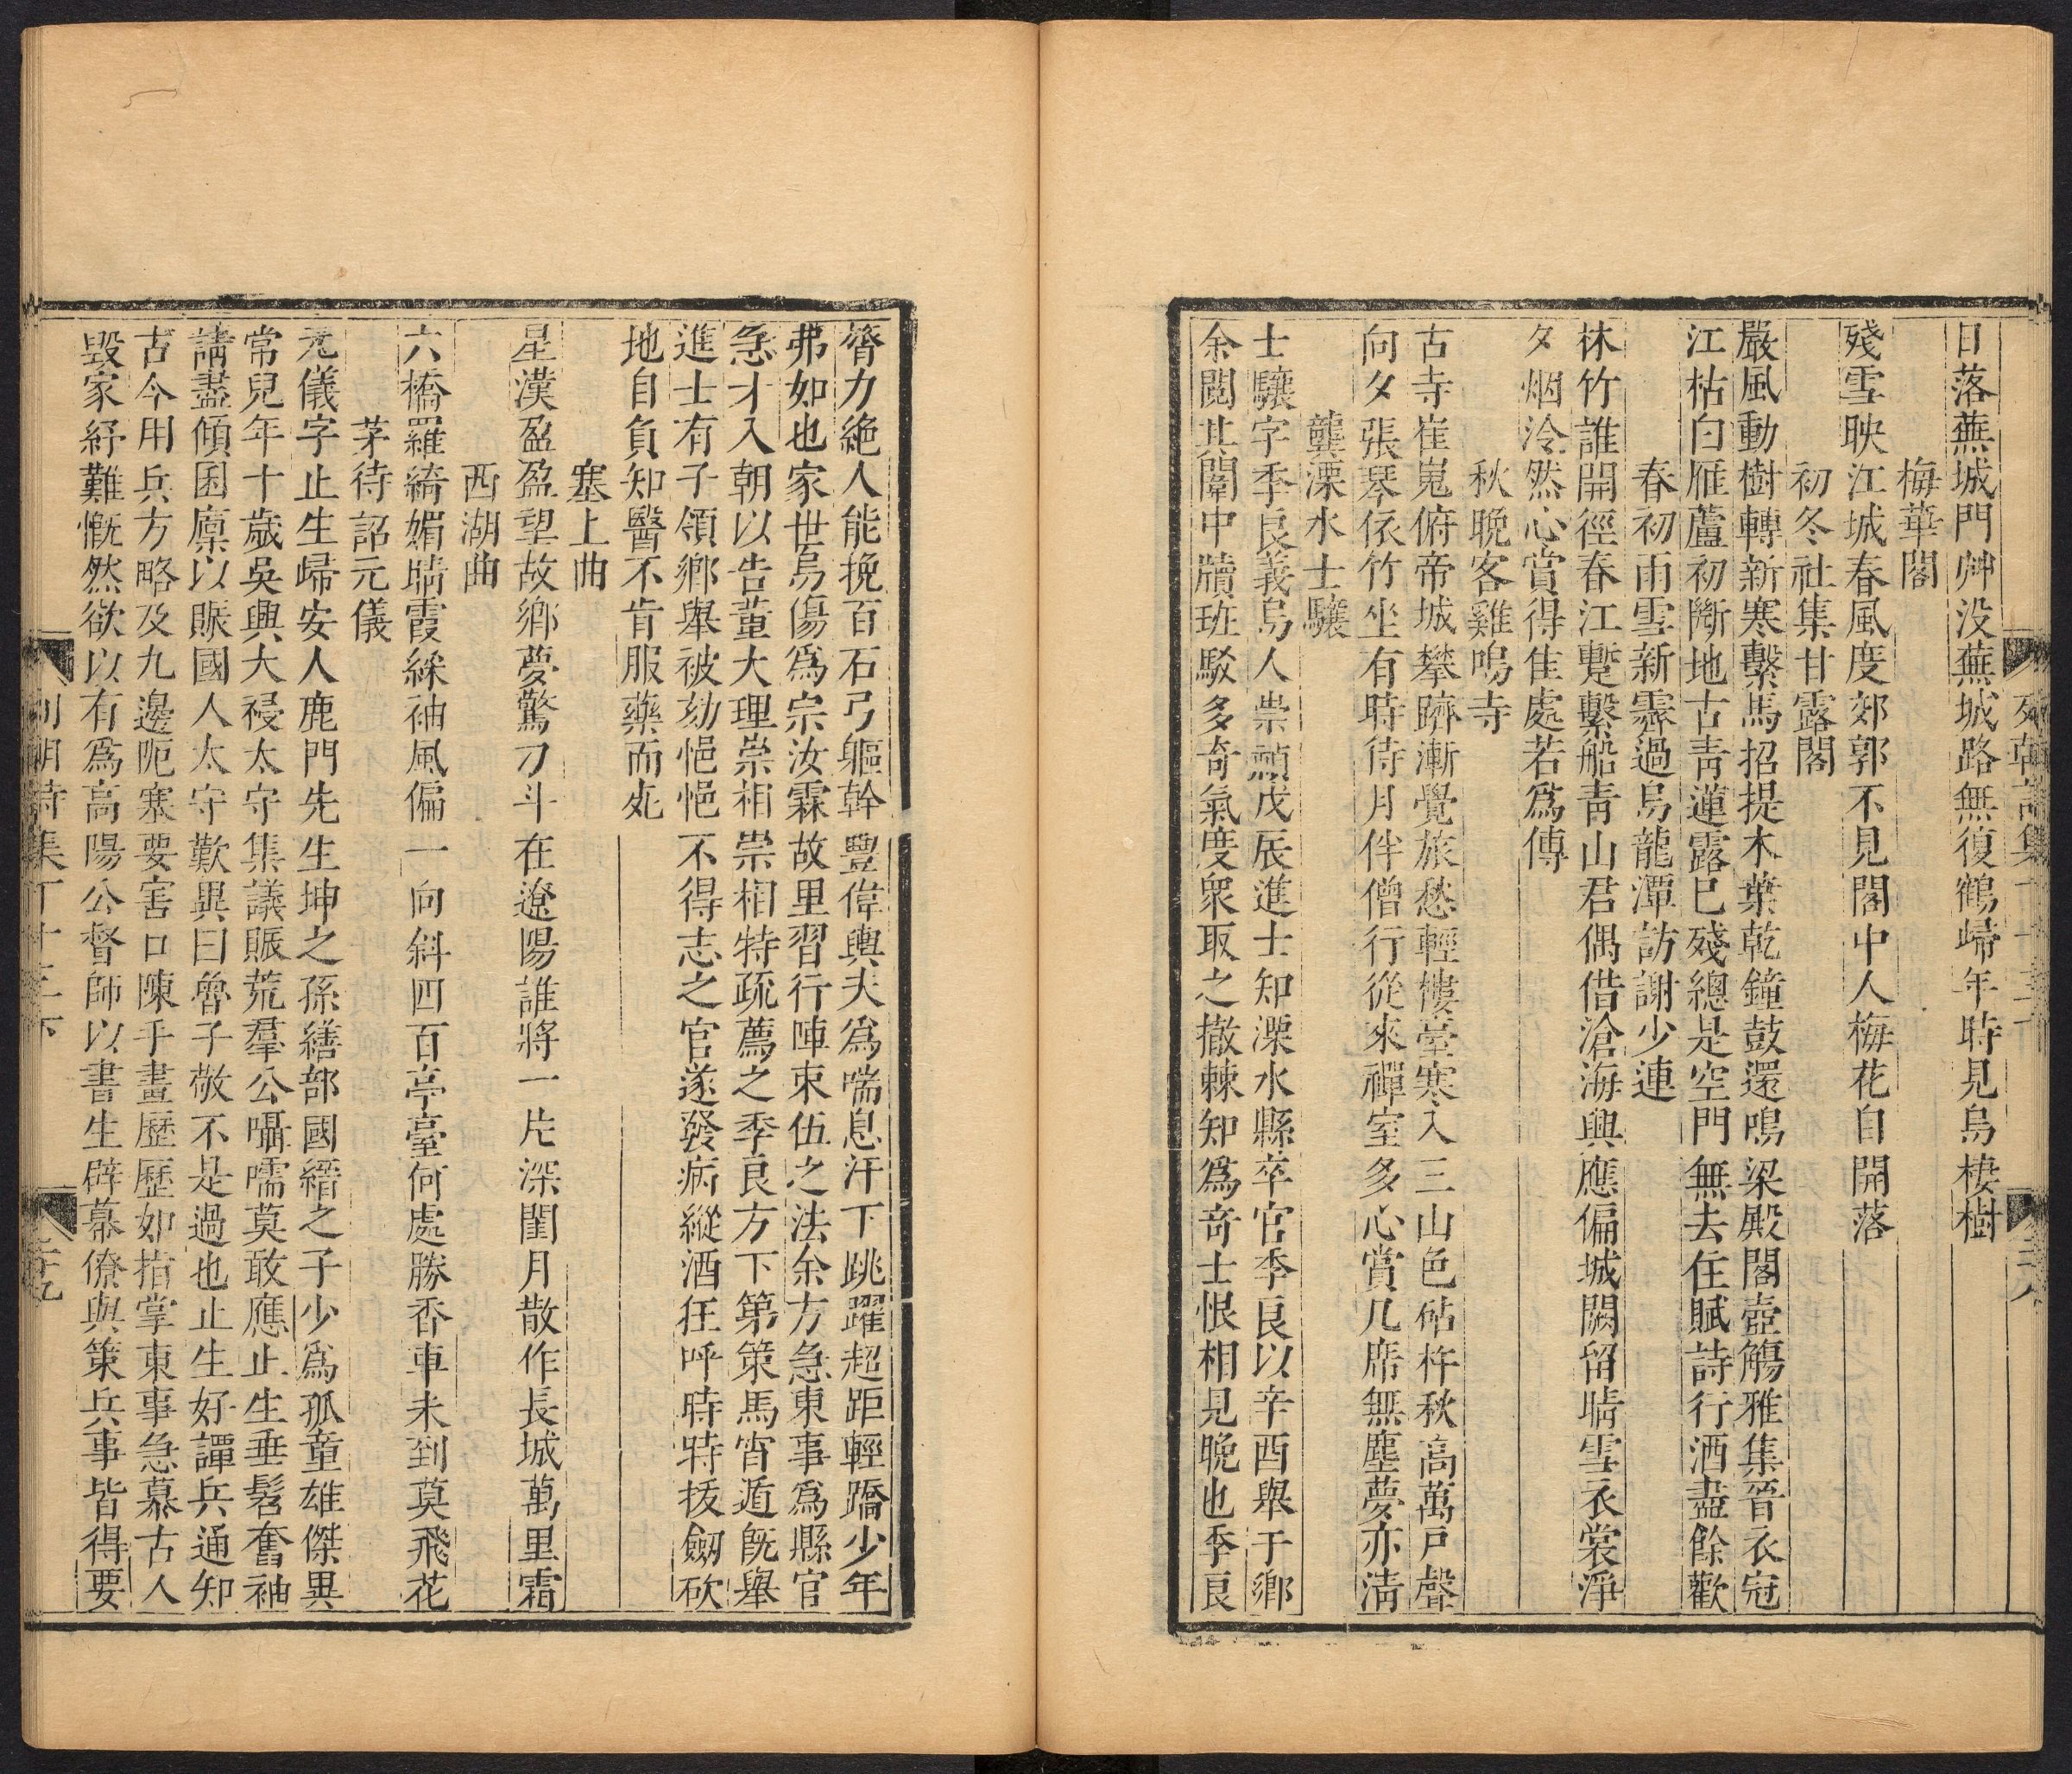 日落蕪城門艸没蕪城路無復鶴歸年時見烏棲樹
梅華閣
殘雪映江城春風度郊郭不見閣中人梅花自開落
初冬社集甘露閣
嚴風動樹轉新寒繫馬招提木葉乾鐘鼓還鳴梁殿閣壺觴雅集晉衣冠
江枯白雁蘆初斷地古靑蓮露巳殘總是空門無去住賦詩行酒盡餘歡
春初雨雪新霽過烏龍潭訪謝少連
袜竹誰開徑春江蹔繫船靑山君偶借滄海興應偏城闕留晴雪衣裳淨
夕烟泠然心賞得隹處若爲傳
秋晚客雞鳴寺
古寺崔嵬俯帝城攀躋漸覺旅愁輕樓臺寒入三山色砧杵秋高萬戸聲
向夕張琴依竹坐有時待月伴僧行從來禪室多心賞几席無塵夢亦淸
龔溧水士驤
士驤字季良義烏人崇禎戊辰進士知溧水縣卒官季良以辛酉舉于鄉
余閱其闈中牘班駁多奇氣度衆取之撤棘知爲竒士恨相見晚也季良
膂力絶人能挽百石弓軀幹豐偉輿夫爲喘息汗下跳躍超距輕蹻少年
弗如也家世烏傷爲宗汝霖故里習行陣束伍之法余方急東事爲縣官
急才入朝以告董大理崇相崇相特疏薦之季良方下第策馬宵遁旣舉
進士有子領鄉舉被劾悒悒不得志之官遂發病縱酒狂呼時時拔劒砍
地自負知醫不肯服藥而死
塞上曲
星漢盈盈望故鄉夢驚刀斗在遼陽誰將一片深閨月散作長城萬里霜
西湖曲
六橋羅綺媚晴霞綵袖風偏一向斜四百亭臺何處勝香車未到莫飛花
茅待詔元儀
元儀字止生歸安人鹿門先生坤之孫繕部國縉之子少爲孤童雄傑異
常兒年十歲吳興大祲太守集議賑荒羣公囁嚅莫敢應止生垂髫奮袖
請盡傾囷廪以賑國人太守歎異曰魯子敬不是過也止生好譚兵通知
古今用兵方略及九邊阨塞要害口陳手畫歷歷如指掌東事急慕古人
毀家紓難慨然欲以有爲高陽公督師以書生辟幕僚與策兵事皆得要